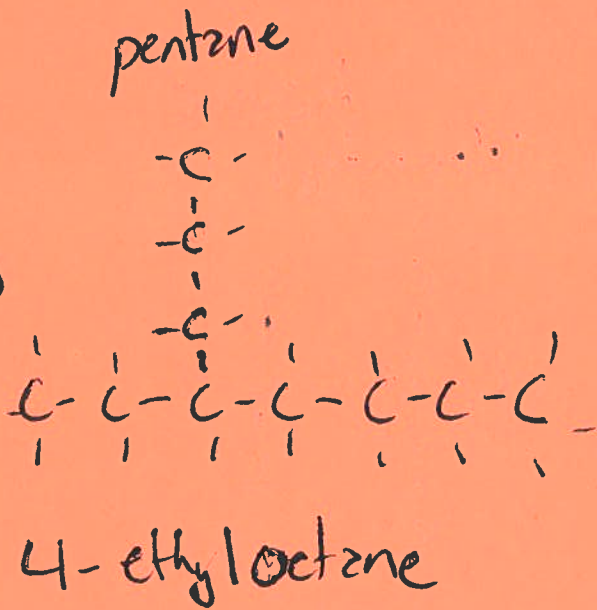 pentane
-C-
-C-
-C-
-C-C-C-C-C-C-C-
4-ethyloctane